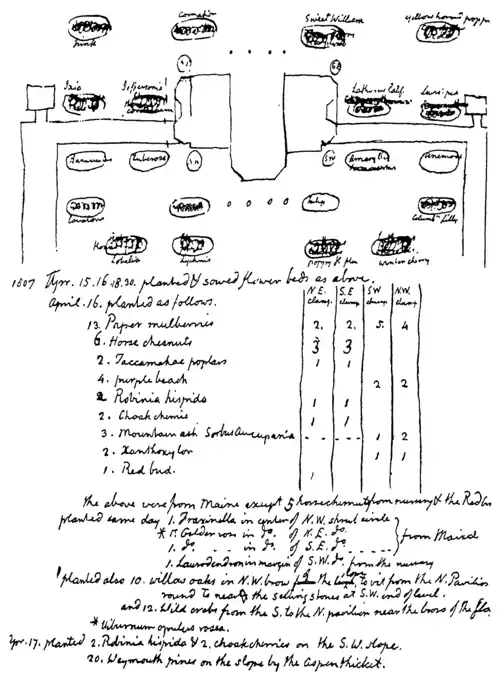 Carnation Sweet William yellow horned poppy
pink
Ixia Jeffersonia Lathyrus Larkspur
Ranunculus tuberose Amaryllis anemone
S.W.
tulip
Lobelia Lychnis winter cherry
1807 Apr. 15. 16. 18. 30. planted & sowed flower beds as above.
April. 16. planted as follows.
N.E. clump. S.E clump SW clump N.W. clump
13. Paper mulberries 2. 2. 5. 4
6. Horse chesnuts 3 3
2. Taccamahac poplars 1 1
4. purple beach 2 2
2 Robinia hispida 1 1
2. Choak cherries 1 1
3. Mountain ash Sorbus Aucuparia 1 2
2. Xanthoxylon 1 1
1. Red bud. 1
the above were from Maine except 5 horse chesnuts from nursery & the Redbud
planted same day 1. Fraxinella in center of N.W. shrub circle
* 1. Gelder rose in do. of N.E. do. from Maine
1. do. in do. of S.E. do.
1. Laurodendron in margin of S.W. do. from the nursery
planted also 10. willow oaks in N.W. brow of the to wit from the N. Pavilion
round to near the setting stones at S.W. end of level.
and 12. Wild crabs from the S. to the N. pavilion near the brow of the
* Viburnum opulus rosea.
Apr. 17. planted 2. Robinia hispida & 2. choak cherries on the S.W. slope.
20. Weymouth pines on the slope by the Aspen thicket.